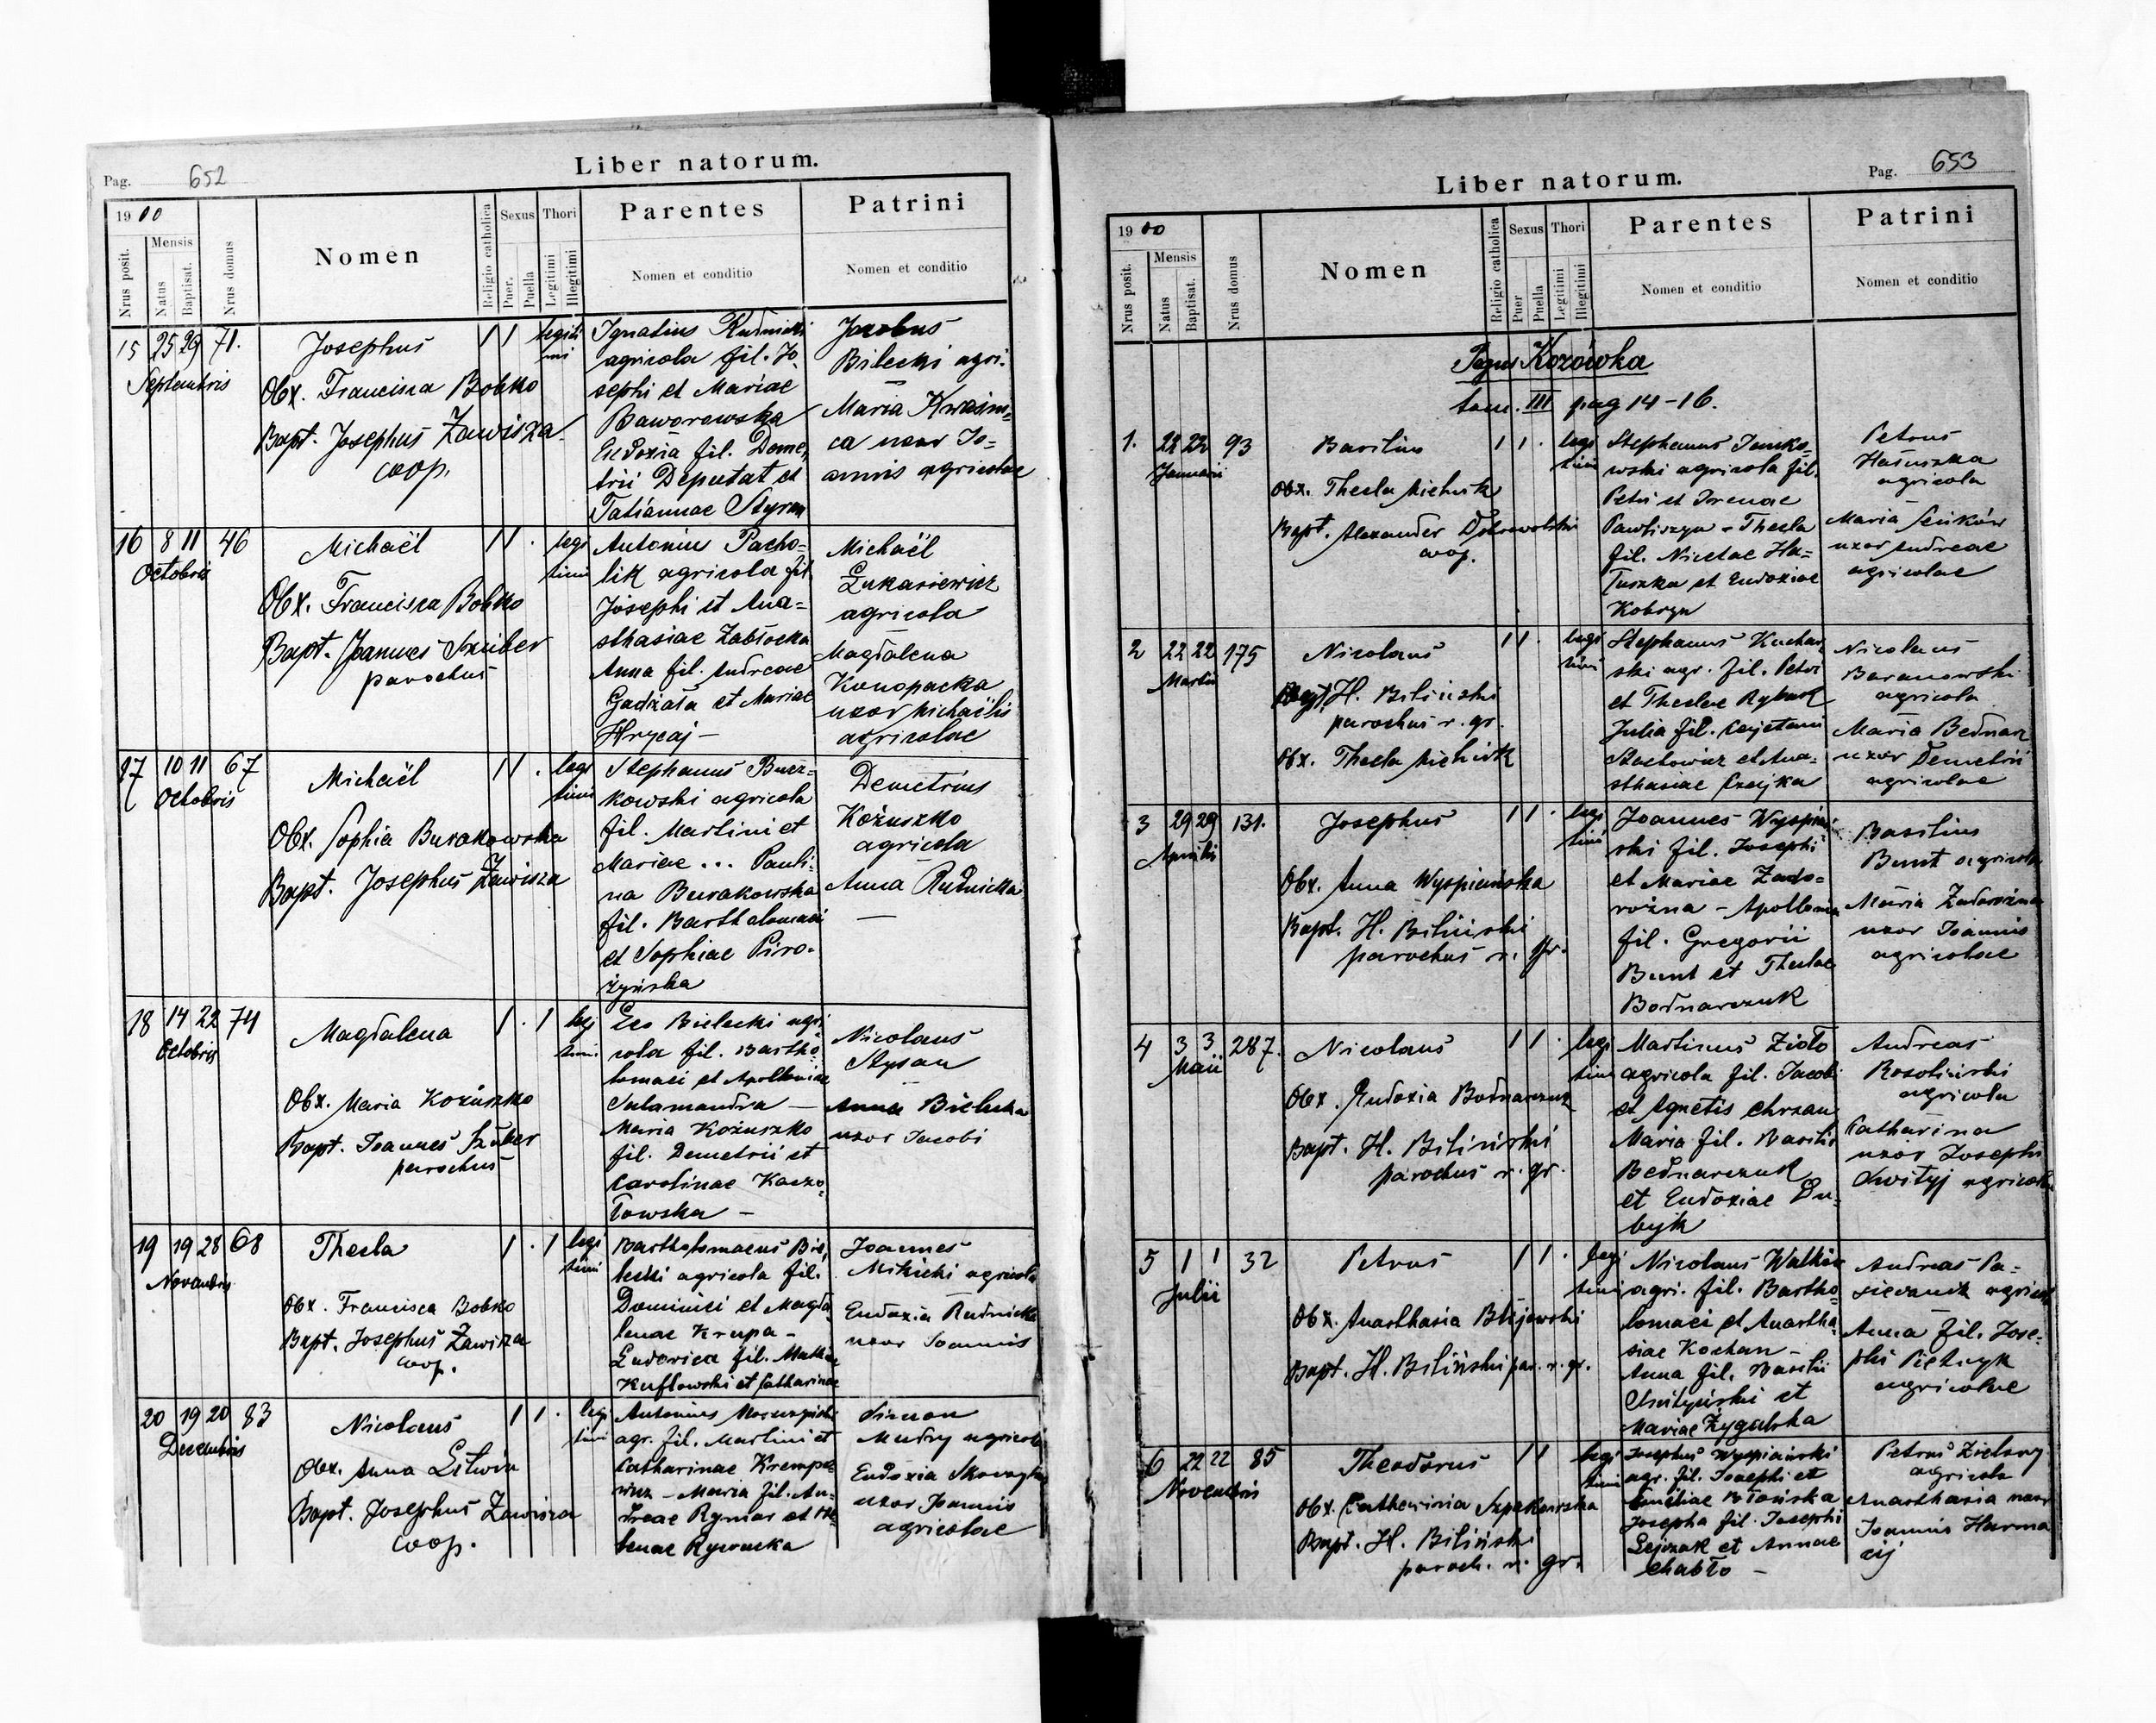 Pag. 652
Liber natorum.
1900
Nrus posit.
Mensis
Natus
Baptisat.
Nrus domus
Nomen
Religio catholica
Sexus
Puer.
Puella
Thori
Legitimi
Illegitimi
Parentes
Nomen et conditio
Patrini
Nomen et conditio
15 25 29 71.
Septembris
Josephus
Obx. Francisca Bobko
Bapt. Josephus Zawisza
coop.
1 1 legiti
mi
Ignatius Rudnicki
agricola fil. Jo
sephi et Mariae
Baworowska
Eudoxia fil. Deme,
trii Deputat et
Tatiannae Styran
Jacobus
Bilecki agri.
Maria Kwaśni=
ca uxor Jo=
annis agricolae
16 8 11 46
Octobris
Michaël
Obx. Francisca Bobko
Bapt. Joannes Szuber
parochus
1 1 . legi
timi
Antonius Pacho=
lik agricola fil
Josephi et Ana=
sthasiae Zabłocka
Anna fil. Andreae
Gadzała et Mariae
Hrycaj -
Michaël
Łukasiewicz
agricola
Magdalena
Konopacka
uxor Michaëlis
agricolae
17 10 11 67
Octobris
Michaël
Obx. Sophia Burakowska
Bapt. Josephus Zawisza
1 1 . legi
timi
Stephanus Bucz=
kowski agricola
fil. Martini et
Mariae ... Pauli=
na Burakowska
fil. Bartholomaei
et Sophiae Piro=
żyńska
Demetrius
Kożuszko
agricola
Anna Rudnicka
—
18 14 22 74
Octobris
Magdalena
Obx. Maria Kożuszko
Bapt. Joannes Szuber
parochus
1 . 1 legi
timi
Leo Bielecki agri
cola fil. Bartho
lomaei et Apolloniae
Salamandra —
Maria Kożuszko
fil. Demetrii et
Carolinae Kaczo
łowska —
Nicolaus
Styran
Anna Bielecka
uxor Jacobi
19 19 28 68
Novembris
Thecla
Obx. Francisca Bobko
Bapt. Josephus Zawisza
coop.
1 . 1 legi
timi
Bartholomaeus Bie,
lecki agricola fil.
Dominici et Magda
lenae Krupa -
Ludovica fil. Mathiae
Kuflowski et Catharinae
Joannes
Mikicki agricola
Eudoxia Rudnicka
uxor Joannis
20 19 20 83
Decembris
Nicolaus
Obx. Anna Litwin
Bapt. Josephus Zawisza
coop.
1 1 . legi
timi
Antonius
agr. fil. Martini et
Catharinae Krempo
wicz - Maria fil. An=
dreae Rymar et He
lenae Rywacka
Simon
Mudry agricola
Eudoxia
uxor Joannis
agricolae
Liber natorum.
Pag. 653
1900
Nrus posit.
Mensis
Natus
Baptisat.
Nrus domus
Nomen
Religio catholica
Sexus
Puer
Puella
Thori
Legitimi
Illegitimi
Parentes
Nomen et conditio
Patrini
Nomen et conditio
Pagus Kozówka
tom. III pag 14-16.
1. 22 22 93
Januarii
Basilius
Obx. Thecla
Bapt. Alexander Dobrowolski
coop.
1 1 . legi
timi
Stephanus Junko=
wski agricola fil.
Petri et Irenae
Pawliszyn - Thecla
fil. Nicetae Ha=
łuszka et Eudoxiae
Kobryn
Petrus
Hałuszka
agricola
Maria Seńków
uxor Andreae
agricolae
2 22 22 175
Martii
Nicolaus
Bapt. H. Biliński
parochus r. gr.
Obx. Thecla
1 1 . legi
timi
Stephanus Kuchar
ski agr. fil. Petri
et Theclae Rybak
Julia fil. Cajetani
Stachowicz et Ana=
sthasiae Czajka
Nicolaus
Baranowski
agricola
Maria Bednarz
uxor Demetrii
agricolae
3 29 29 131.
Aprilis
Josephus
Obx. Anna Wyspiańska
Bapt. H. Biliński
parochus r. gr.
1 1 . legi
timi
Joannes Wyspiań
ski fil. Josephi
et Mariae Zado=
rożna - Apollonia
fil. Gregorii
Bunt et Theclae
Bodnarczuk
Basilius
Bunt agricola
Maria Zadorożna
uxor Joannis
agricolae
4 3 3 287.
Maii
Nicolaus
Obx. Eudoxia Bodnarczuk
Bapt. H. Biliński
parochus r. gr.
1 1 . legi
timi
Martinus Zioło
agricola fil. Jacobi
et Agnetis Chrzan
Maria fil. Basilii
Bednarczuk
et Eudoxiae Du=
byk
Andreas
Rosoliński
agricola
Catharina
uxor Josephi
Swityj agricolae
5 1 1 32
Julii
Petrus
Obx. Anasthasia
Bapt. H. Biliński par. r. gr.
1 1 . legi
timi
Nicolaus Walków
agri. fil. Bartho=
lomaei et Anastha=
siae Kochan -
Anna fil. Basilii
et
Mariae Zygalska
Andreas Pa=
agricola
Anna fil. Jose=
phi Pietryk
agricolae
6 22 22 85
Novembris
Theodorus
Obx. Catharina Szpakowska
Bapt. H. Biliński
paroch. r. gr.
1 1 legi
timi
Josephus Wyspiański
agr. fil. Josephi et
Emiliae Błońska
Josepha fil. Josephi
Lejczak et Annae
Chabło —
Petrus Zielony
agricola
Anasthasia uxor
Joannis Harma
cij